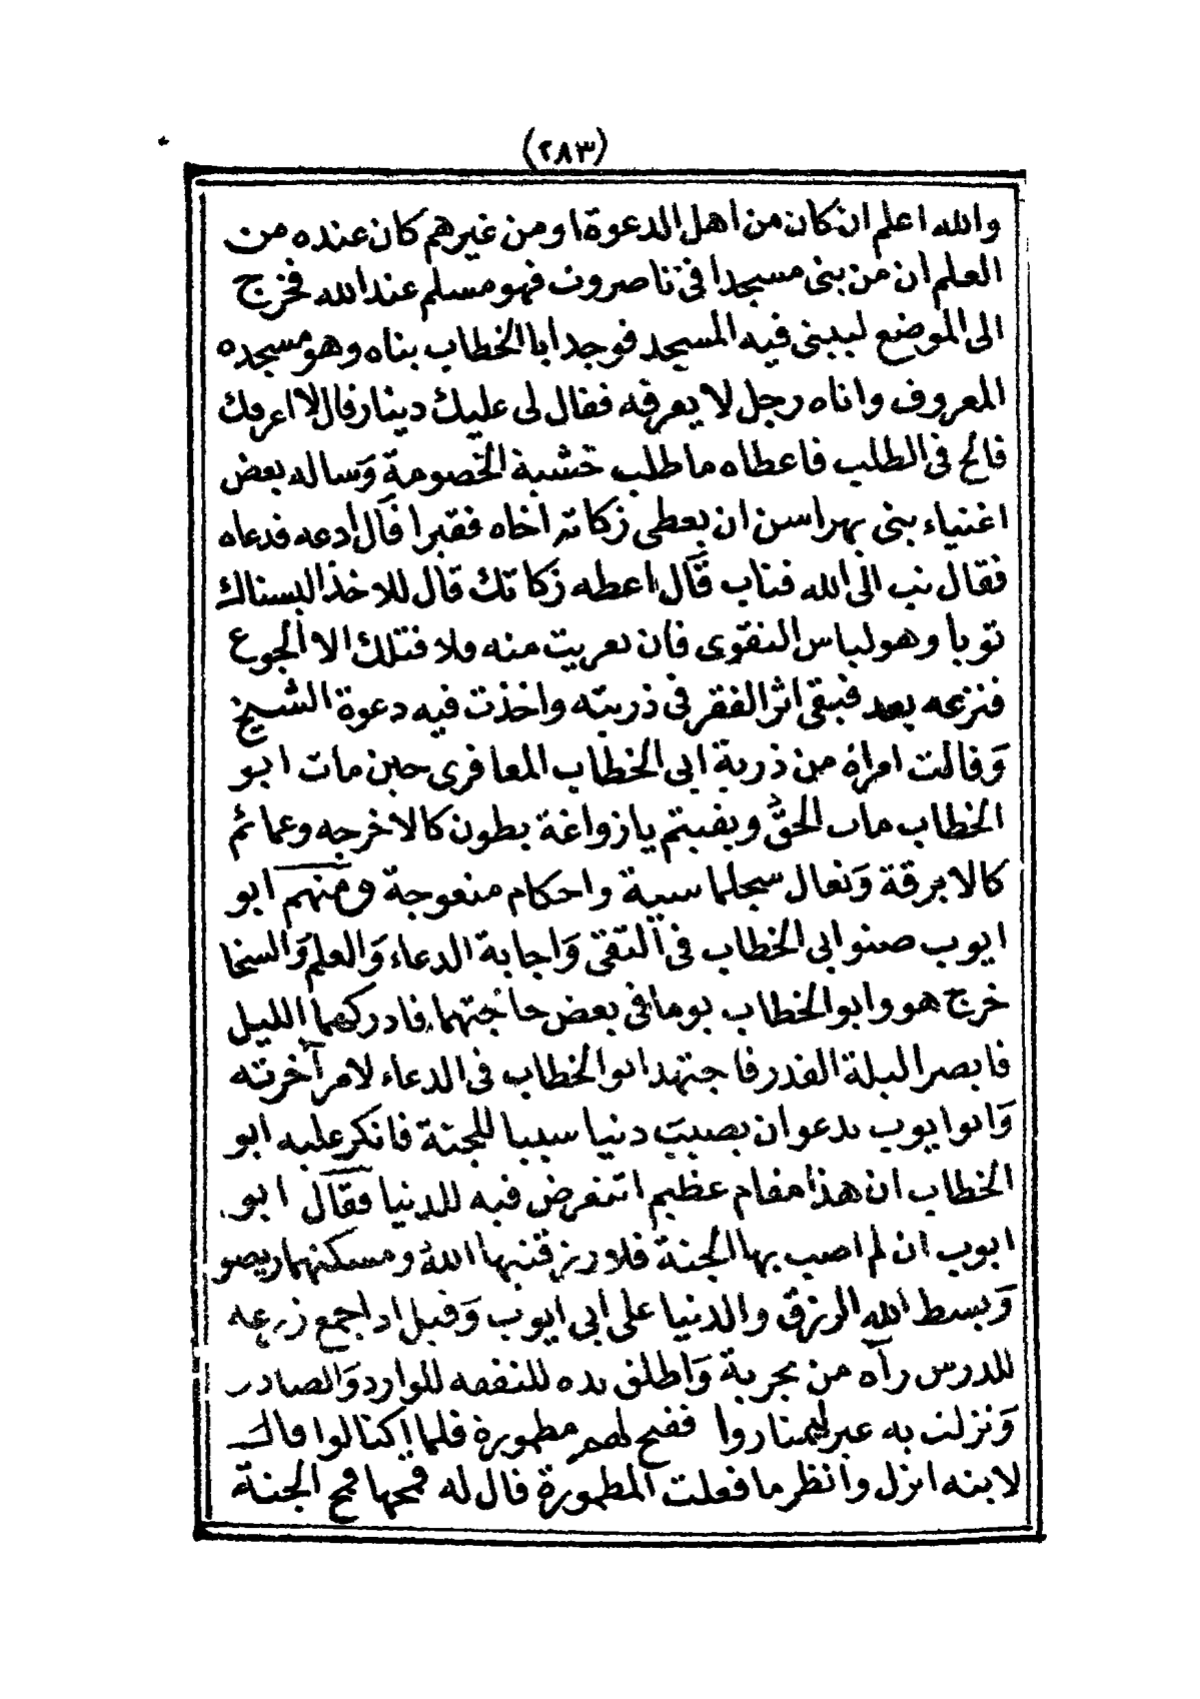 (٢٨٣)
والله اعلم ان كان من اهل الدعوة او من غيرهم كان عنده من
العلم ان من بنى مسجدا في تناصروت فهو مسلم عند الله فخرج
الى الموضع ليبنى فيه المسجد فوجد ابا الخطاب بناه وهو مسجده
المعروف واتاه رجل لا يعرفه فقال لى عليك دينار قال لا اعرفك
فالح في الطلب فاعطاه ما طلب خشية الخصومة وساله بعض
اغنياء بنى يهراسن ان يعطى زكاته اخاه فقيرا قال ادعه فدعاه
فقال تب الى الله فتاب قال اعطه زكاتك قال للاخذ البسناك
ثوبا وهو لباس التقوى فان تعريت منه فلا قتلك الا الجوع
فنزعه بعد فبقى اثر الفقر في ذريته واخذت فيه دعوة الشيخ
وقالت امراة من ذرية ابى الخطاب المعافرى حين مات ابو
الخطاب مات الحق وبقيتم يا زواغة بطون كالاخرجه وعمائم
كالابرقة ونعال سجلماسية واحكام منعوجة ومنهم ابو
ايوب صنو ابى الخطاب في التقى واجابة الدعاء والعلم والسخا
خرج هو وابو الخطاب يوما في بعض حاجتهما فادركهما الليل
فابصرا ليلة القدر فاجتهد ابو الخطاب في الدعاء لامر آخرته
وابو ايوب يدعو ان يصيب دنيا سببا للجنة فانكر عليه ابو
الخطاب ان هذا مقام عظيم اتتعرض فيه للدنيا فقال ابو
ايوب ان لم اصب بها الجنة فلا رزقنيها الله ومسكنهما ريصو
وبسط الله الرزق والدنيا على ابى ايوب وقيل اذا جمع زرعه
للدرس رآه من بجربة واطلق يده للنفقه للوارد والصادر
ونزلت به عير ليمتاروا ففتح لهم مطمورة فلما اكتالوا قال
لابنه انزل وانظر ما فعلت المطمورة قال له قمحها قمح الجنة